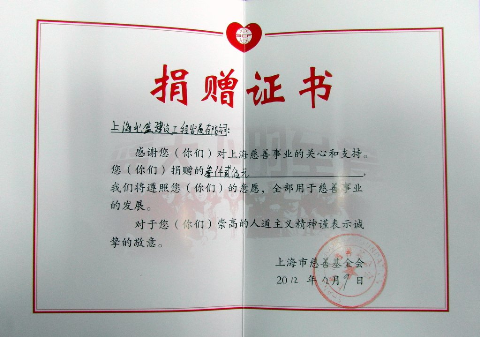 捐赠证书
上海
感谢您（你们）对上海慈善事业的关心和支持。
您（你们）捐赠的
我们将遵照您（你们）的意愿、全部用于慈善事业
的发展。
对于您（你们）崇高的人道主义精神谨表示诚
挚的敬意。
上海市慈善基金会
2012 年 月 9 日